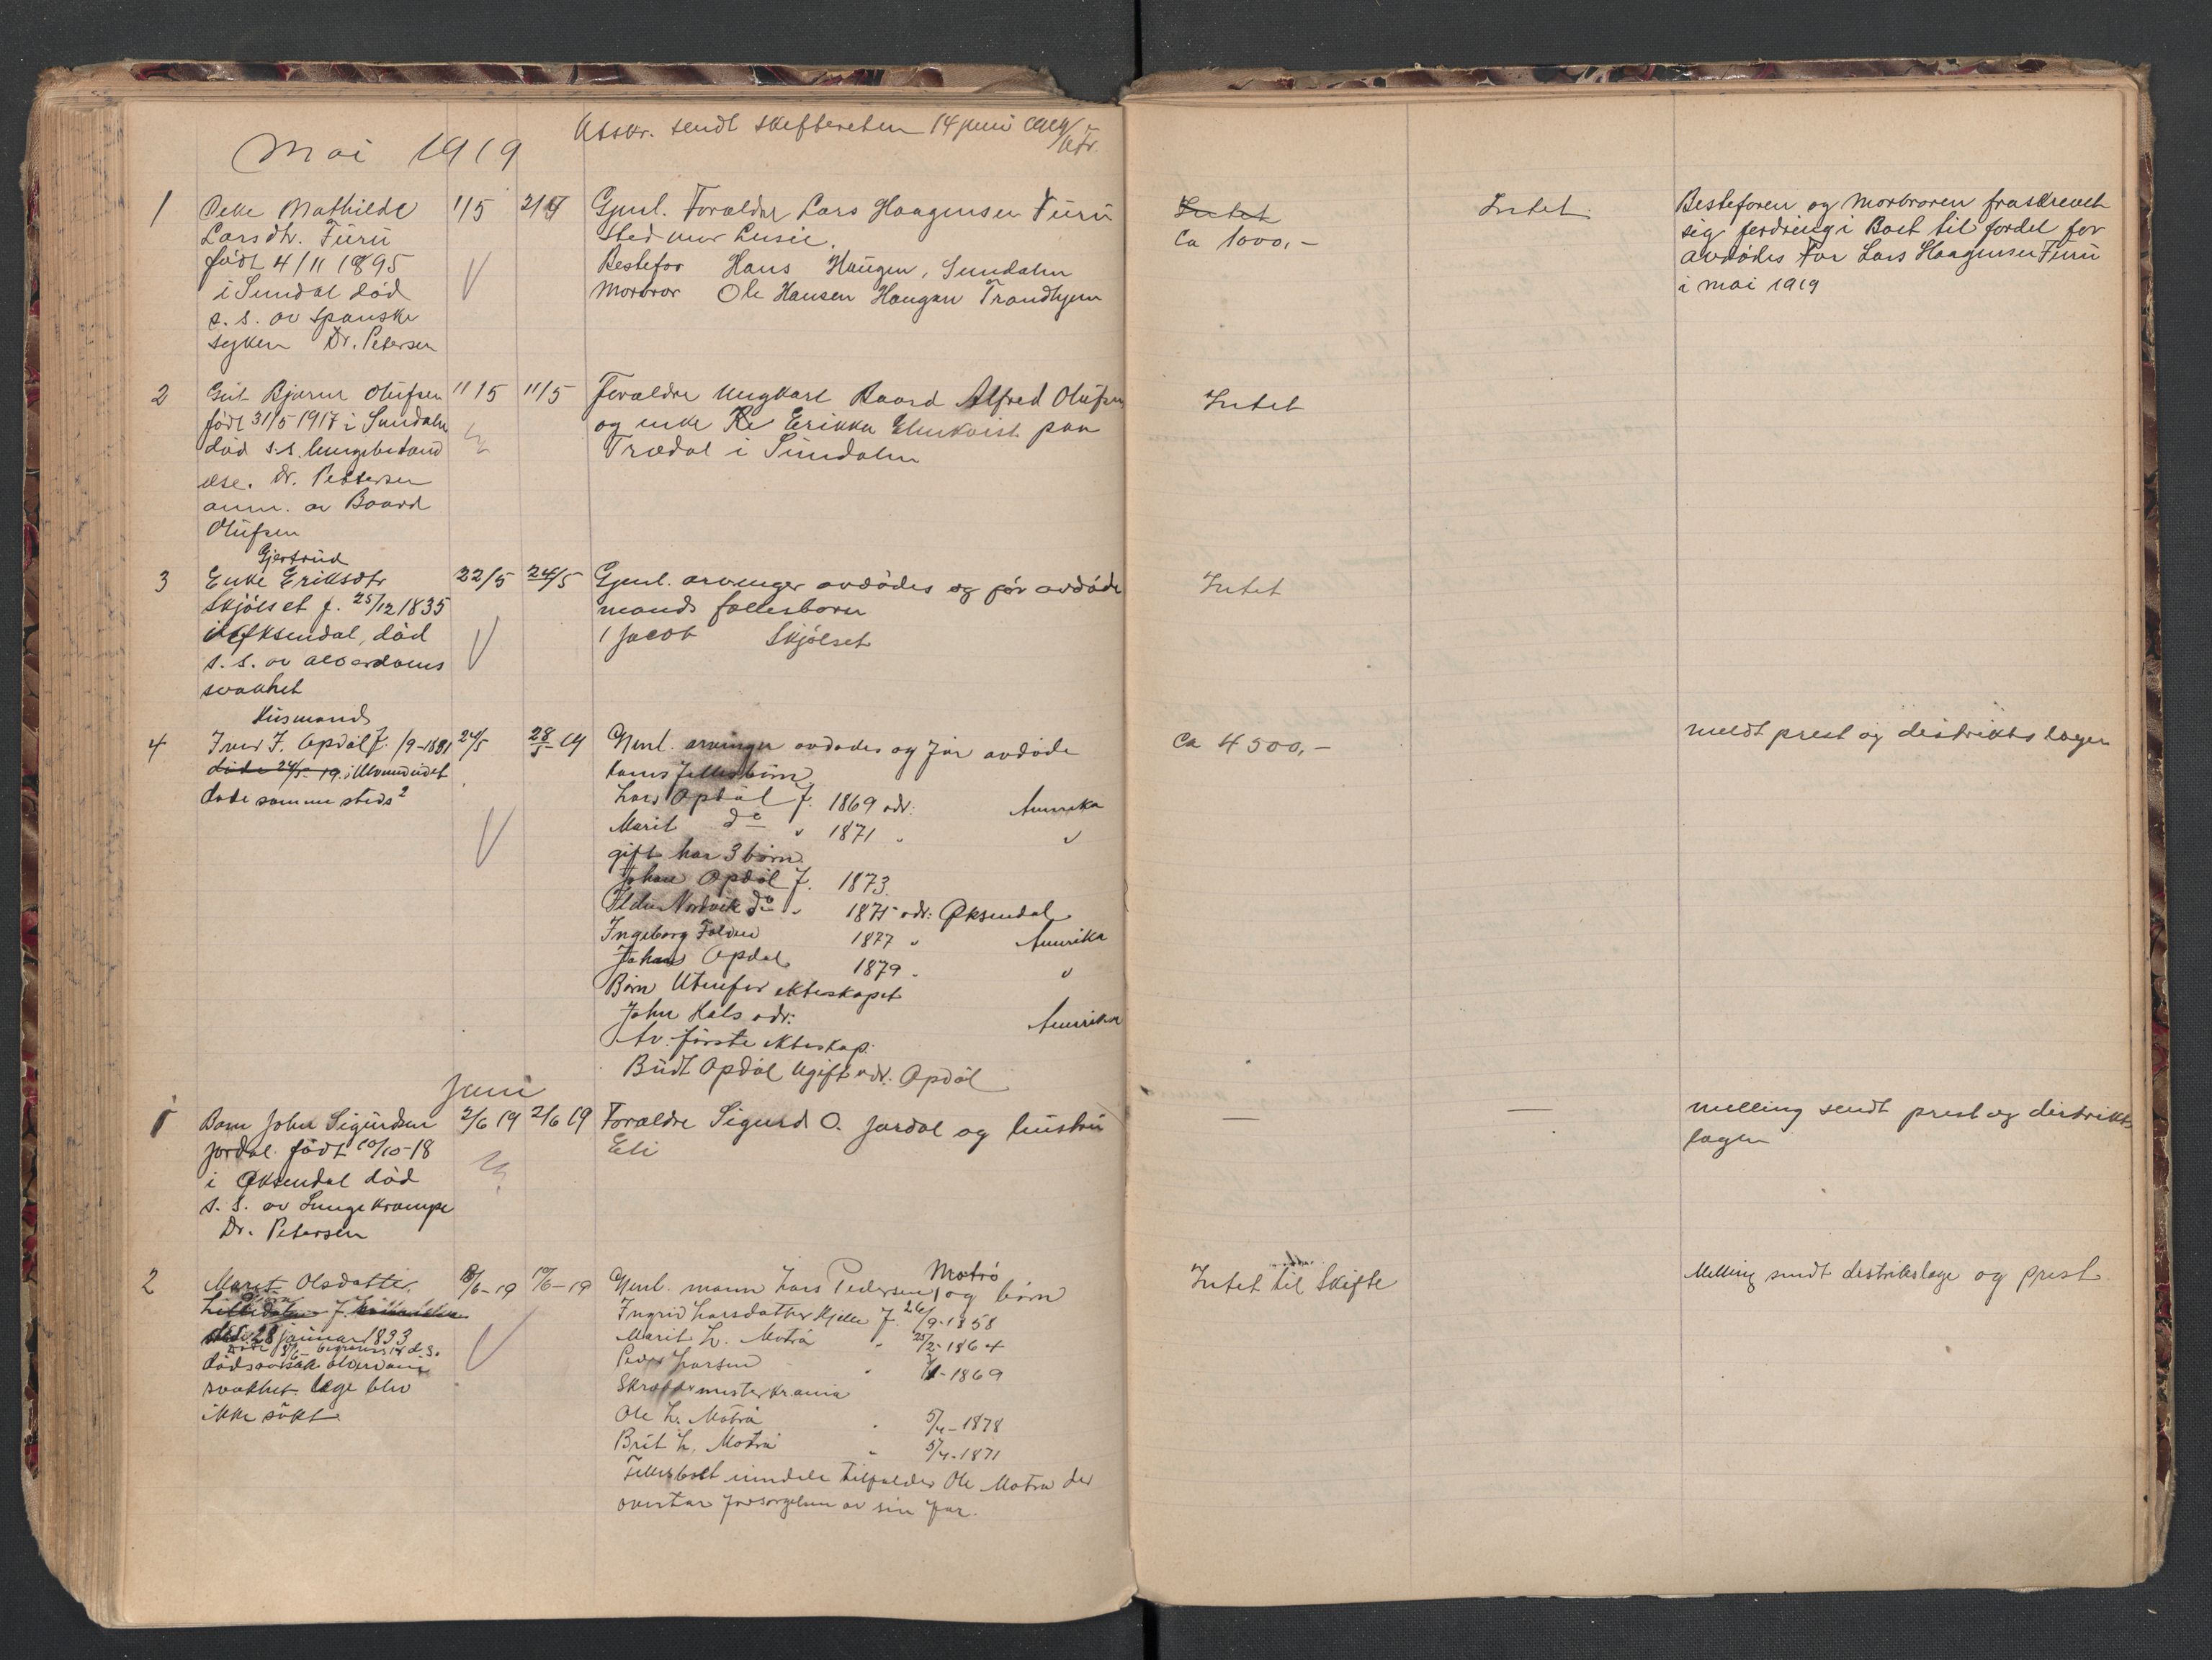 Mai 1919
Utskr. sendt skifteretten 14 juni 1919
1
Peke Mathilde
Larsdtr. Furu
født 4/11 1895
i Sundal død
s. s. av spanske
syken Dr. Petersen
1/5
Gjenl. Forældre Lars Haagensen Furu
Sted mor Lusie.
Bestefar Hans Haugen, Sundalen
Morbror Ole Hansen Haugen Trondhjem
Intet
Ca 1000,-
Intet
Bestefaren og Morbroren fraskrevet
sig fordring i Boet til fordel for
avdødes Far Lars Haagensen Furu
i mai 1919
2
Gut Bjarne Olufsen
født 31/5 1917 i Sundalen
død s.s. lungebetænd
else. Dr. Petersen
anm. av Baard
Olufsen
11/5
11/5
Forældre Ungkarl Baard Alfred Olufsen
og enke Erikka Elmkvist paa
Trædal i Sundalen
Intet
3
Gjertrud
Enke Eriksdtr
Skjølset f. 25/12 1835
i Øksendal, død
s. s. av alderdoms
svakhet
22/5
24/5
Gjenl. arvinger avdødes og før avdøde
mands fællesbarn
1 Jacob Skjølset
Intet
4
Husmand
Iver J. Opdøl f. /9-1831
døde 24/5-19. i Ulvundeidet
døde samme steds
24/5
28/5-19
Gjenl. arvinger avdødes og før avdøde
konas fellesbørn
Lars Opdøl f. 1869 adr: Amerika
Marit do " 1871 " "
gift har 3 børn.
Johan Opdøl f. 1873.
Nordvik do " 1875 adr: Øksendal
Ingeborg Falden 1877 " Amerika
Johan Opdøl 1879 " "
Børn Utenfor ekteskapet
John Hals adr: Amerika
Av første ekteskap.
Budt Opdøl Ugift adr. Opdøl
Ca 4500,-
meldt prest og distrikts lægen
Juni
1
Barn John Sigurdsen
Jordal født 10/10-18
i Øksendal død
s. s. av Lungekrampe
Dr. Petersen
2/6 19
2/6 19
Forældre Sigurd O. Jordal og hustru
Eli
—
—
melling sendt prest og distrikts
lægen
2
Marit Olsdatter
januar 1833
dødsaarsak alderdoms
svakhet. læge blev
ikke søkt.
10/6-19
Motrö
Gjenl. mann Lars Pedersen og børn
Ingrid Larsdatter Hjelle f. 26/9-1858
Marit L. Motrö " 25/2-1864
Peder Larsen " -1869
Skræddermester Kr.ania
Ole L. Motrö " 5/4-1878
Brit L. Motrö " 5/4-1871
Fellesboet tilfalder Ole Motrö der
overtar forsørgelsen av sin far.
Intet til Skifte
Melling sendt distrikslæge og prest